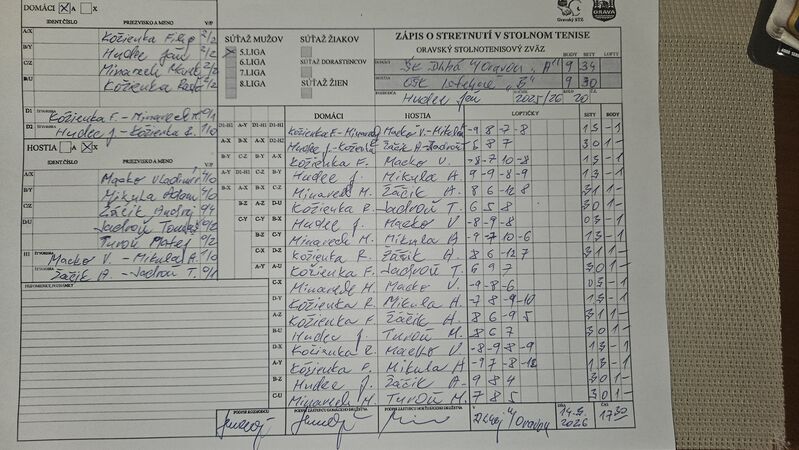 DOMÁCI X A X
IDENT.ČÍSLO PRIEZVISKO A MENO V/P
A/X Kožienka Filip 2/2
B/Y Hudec Ján 2/2
C/Z Minarech
B/U Kožienka
D1 ŠTVORHRA Kožienka F. - Minarech M. 0/1
D2 Hudec J. - Kožienka R. 1/0
HOSTIA A X X
IDENT.ČÍSLO PRIEZVISKO A MENO V/P
A/X Macko Vladimír 4/0
B/Y Mikula Adam 4/0
C/Z Žáčik Andrej 0/4
D/U Jadroň Tomáš 0/2
Turoň Matej 0/2
H1 ŠTVORHRA Macko V. - Mikula A. 1/0
ŠTVORHRA Žáčik A. - Jadroň T. 0/1
PRIPOMIENKY, POZNÁMKY
SÚŤAŽ MUŽOV
5.LIGA
6.LIGA
7.LIGA
8.LIGA
SÚŤAŽ ŽIAKOV
SÚŤAŽ DORASTENCOV
SÚŤAŽ ŽIEN
Oravský STZ
ORAVA
ZÁPIS O STRETNUTÍ V STOLNOM TENISE
ORAVSKÝ STOLNOTENISOVÝ ZVÄZ BODY SETY LOPTY
"A" 9 34
OŠK "B" 9 30
Hudec Ján 2025/26 20
DOMÁCI HOSTIA LOPTIČKY SETY BODY
Kožienka F. - Minarech Macko V. - Mikula -9 8 -7 -8 1 3 -1
Hudec J. - Kožienka Žáčik A. - Jadroň 6 8 7 3 0 1 -
Kožienka F. Macko V. -8 -7 10 -8 1 3 -1
Hudec J. Mikula A -9 9 -8 -9 1 3 -1
Minarech M. Žáčik A. 8 6 -12 8 3 1 1 -
Kožienka R. Jadroň T. 6 5 8 3 0 1 -
Hudec J. Macko V. -8 -9 -8 0 3 -1
Minarech M. Mikula A -9 -7 10 -6 1 3 -1
Kožienka R. Žáčik A. 8 6 -12 7 3 1 1 -
Kožienka F. Jadroň T. 6 9 7 3 0 1 -
Minarech M. Macko V. -9 -8 -6 0 3 -1
Kožienka R. Mikula A. -7 8 -9 -10 1 3 -1
Kožienka F. Žáčik A. 8 6 -9 5 3 1 1 -
Hudec J. Turoň M. 8 6 7 3 0 1 -
Kožienka R. Macko V. -8 -9 8 -9 1 3 -1
Kožienka F. Mikula A -9 7 -8 -12 1 3 -1
Hudec J. Žáčik A. 9 8 4 3 0 1 -
Minarech M. Turoň M. 7 8 5 3 0 1 -
PODPIS ROZHODCU PODPIS ZÁSTUPCU DOMÁCEHO DRUŽSTVA PODPIS ZÁSTUPCU HOSŤUJÚCEHO DRUŽSTVA V DŇA ČAS
2026 17 30